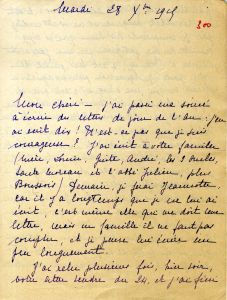 Mardi 28 Xbre 1915
200
Mon chéri – j'ai passé ma soirée
à écrire des lettres de jour de l'an : j'en
ai écrit dix ! N'est-ce pas que je suis
courageuse ? J'ai écrit à votre famille
(Marie, Louise, Juste, André, les 3 oncles,
Julien, plus
) Demain, je ferai Jeannette
car il y a longtemps que je ne lui ai
écrit, c'est même elle qui me doit une
lettre, mais en famille il ne faut pas
compter, et je pense lui écrire un
peu longuement.
J'ai relu plusieurs fois, hier soir,
votre lettre tendre du 24, et j'ai fini